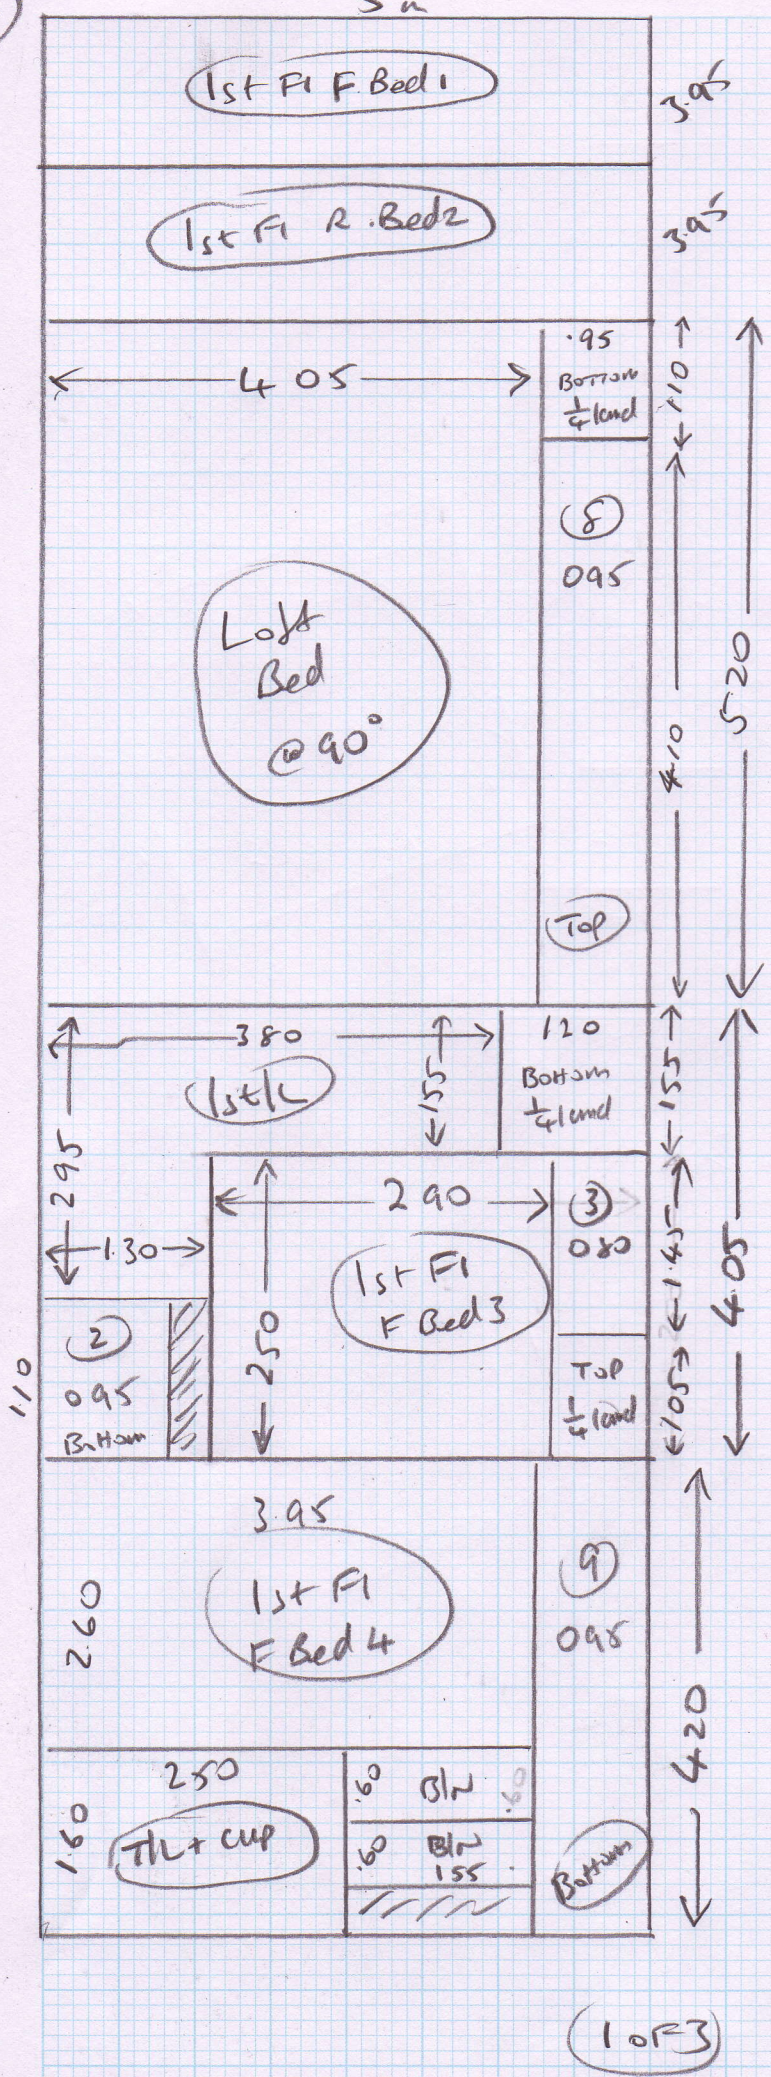 5m
1st Fl F.Bed 1
3.95
1st Fl R.Bed 2
3.95
4 05
.95
Bottom
1/4 land
1.10
8
095
Loft
Bed
@ 90°
4.10
520
Top
380
1st/L
155
120
Bottom
1/4 land
155
295
1.30
290
3
080
1.45
405
1st Fl
F Bed 3
250
2
095
Bottom
1.10
Top
1/4 land
105
3.95
1st Fl
F Bed 4
2.60
9
095
420
250
T/L + cup
1.60
.60 B/N .60
.60 B/N
155
Bottom
1 OF 3